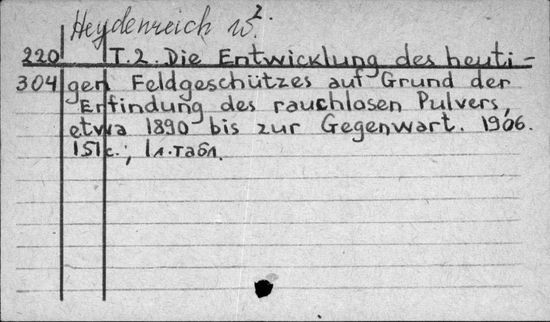 Heydenreich W².
220 T.2. Die Entwicklung des heuti-
304 gen Feldgeschützes auf Grund der
Erfindung des rauchlosen Pulvers,
etwa 1890 bis zur Gegenwart. 1906.
151c.; 1л.табл.